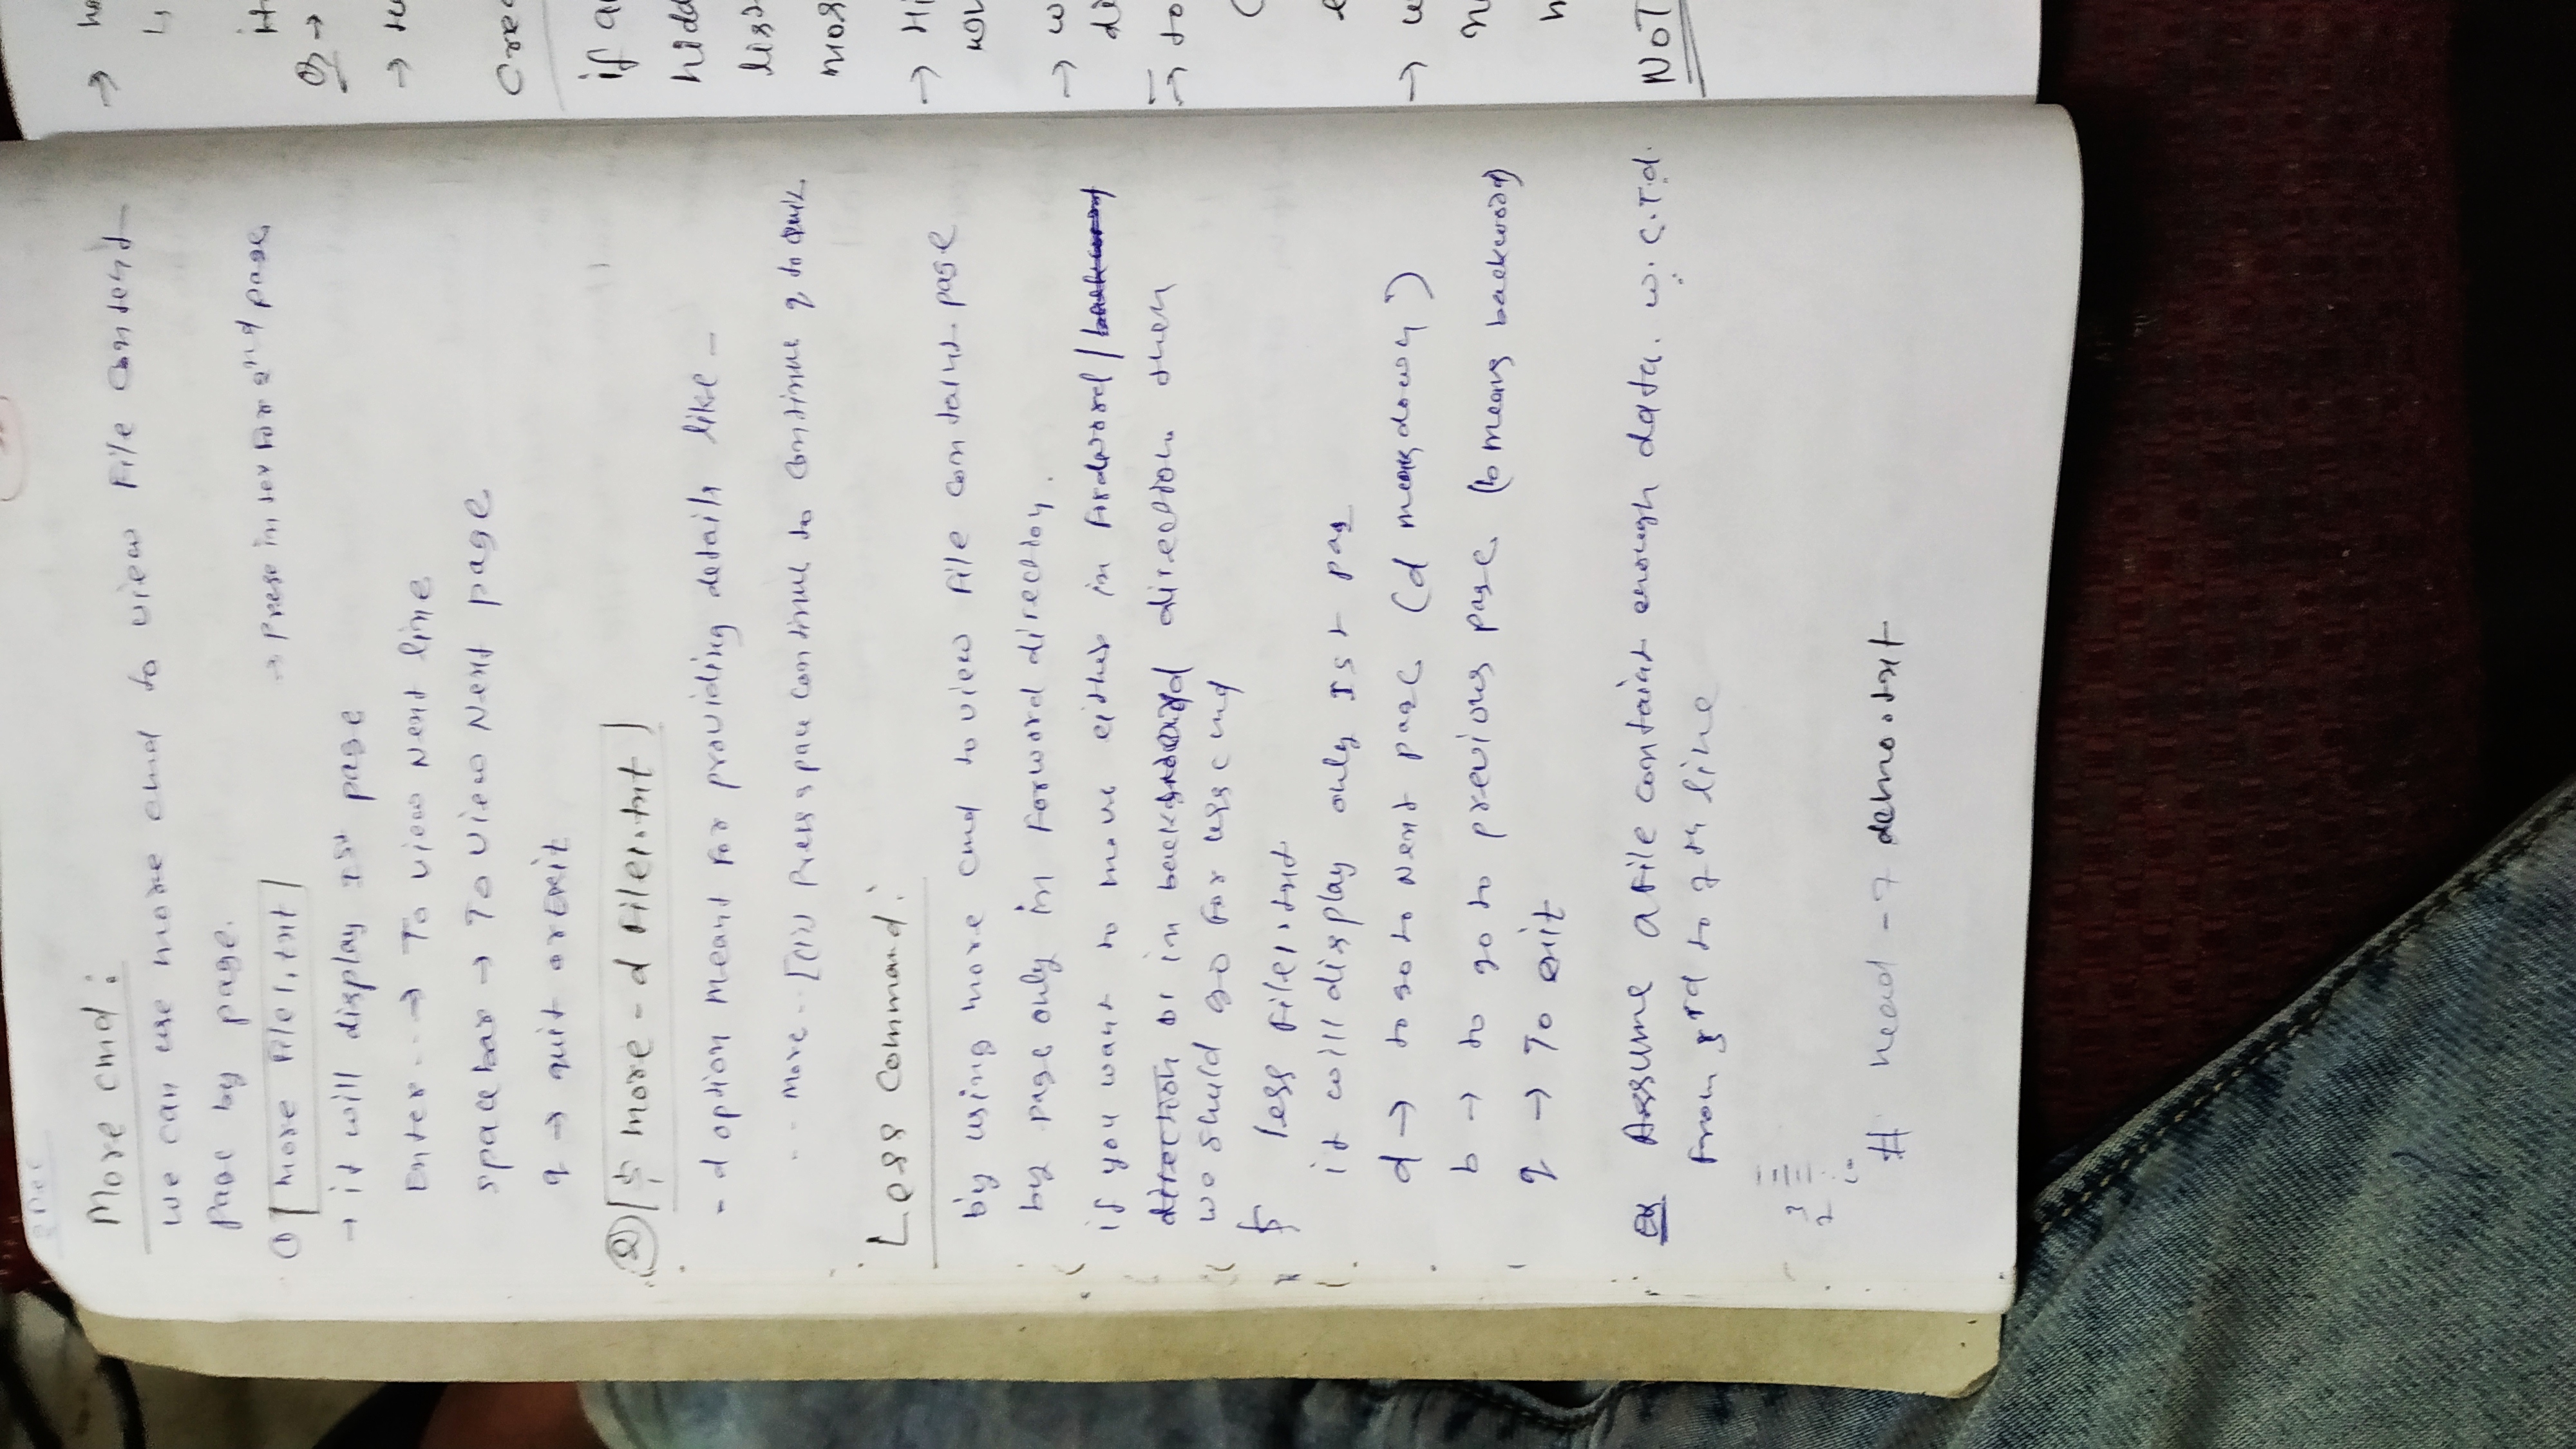 2 Dec
More cmd:
we can use more cmd to view File Content
Page by page.
① more File1.txt → Press inter For 2nd page
→ it will display Ist page
Enter --→ To view Next line
spacebar → To view Next page
q → quit or Exit
② $ more -d File1.txt
-d option meant for providing details like -
-- More -- Press space continue to continue q to quit
Less Command:
by using more cmd to view File contains page
by page only in Forword direction.
if you want to move either in Fordword / backword
direction or in backword direction then
we shuld go For less cmd
$ less File1.txt
it will display only Ist pag
d → to go to Next page (d means down)
b → to go to previous page (b means backword)
q → To exit
Ex Assume a File contains enough data. w.c.T.d.
From 3rd to 7th line
3
7
# head -7 demo.txt
if a
hidd
list
mor
→ Hi
→ w
di
→ to
NOT